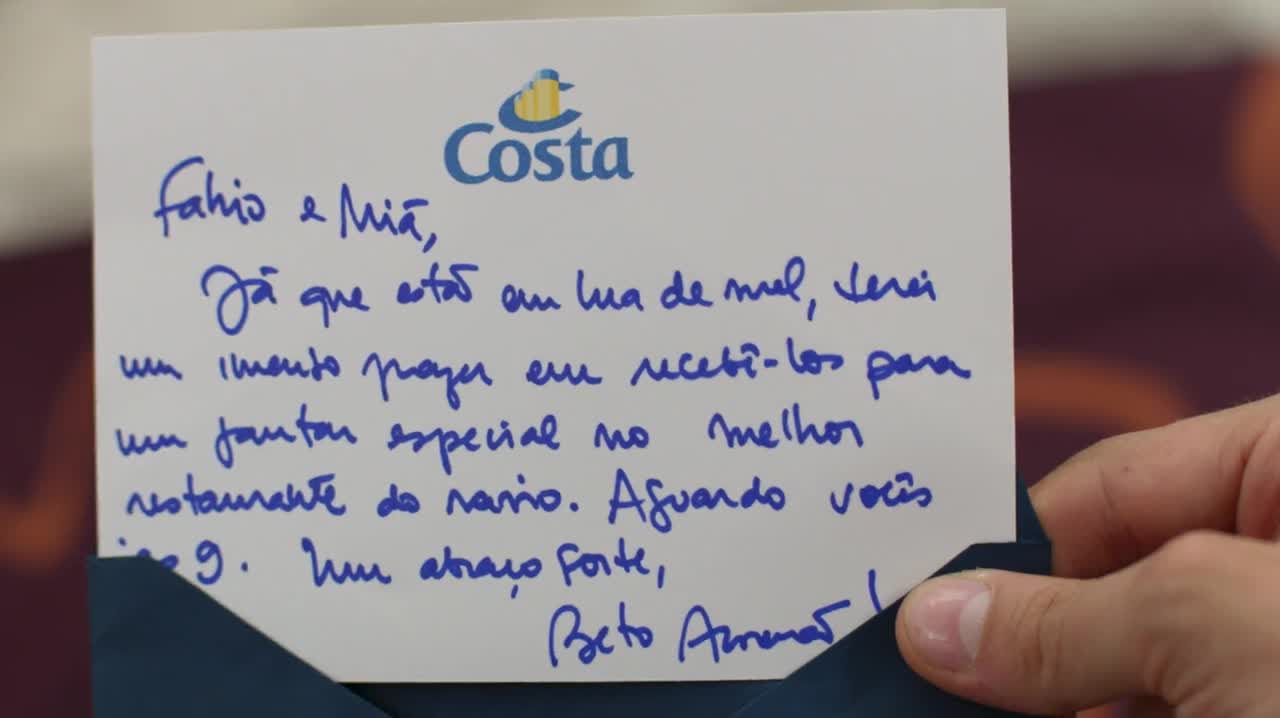 Costa
Fabio e Miã,
Já que estão em lua de mel, terei
um imenso prazer em recebê-los para
um jantar especial no melhor
restaurante do navio. Aguardo vocês
9. Um abraço forte,
Beto